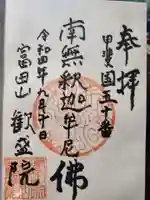 奉拝
甲斐国三十番
南無釈迦牟尼佛
令和四年九月十日
富田山 歓盛院